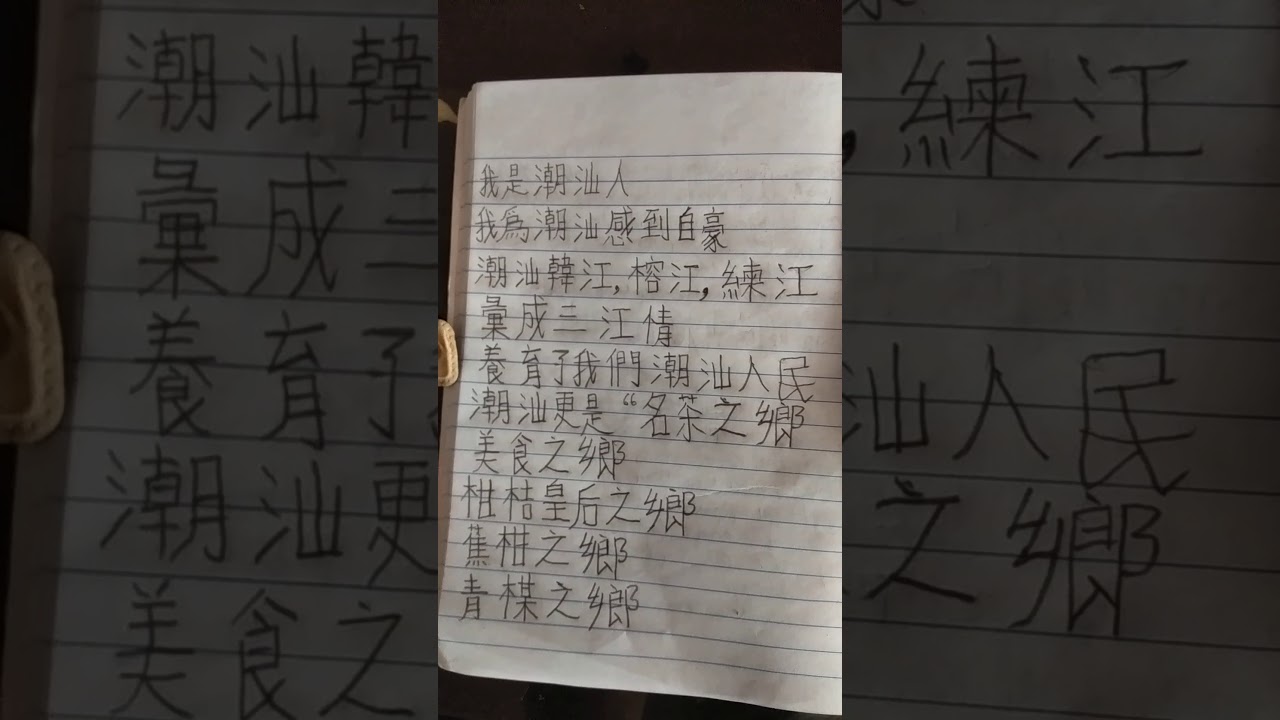 我是潮汕人
我為潮汕感到自豪
潮汕韓江,榕江,練江
彙成三江情
養育了我們潮汕人民
潮汕更是“名茶之鄉
美食之鄉
柑桔皇后之鄉
蕉柑之鄉
青楳之鄉